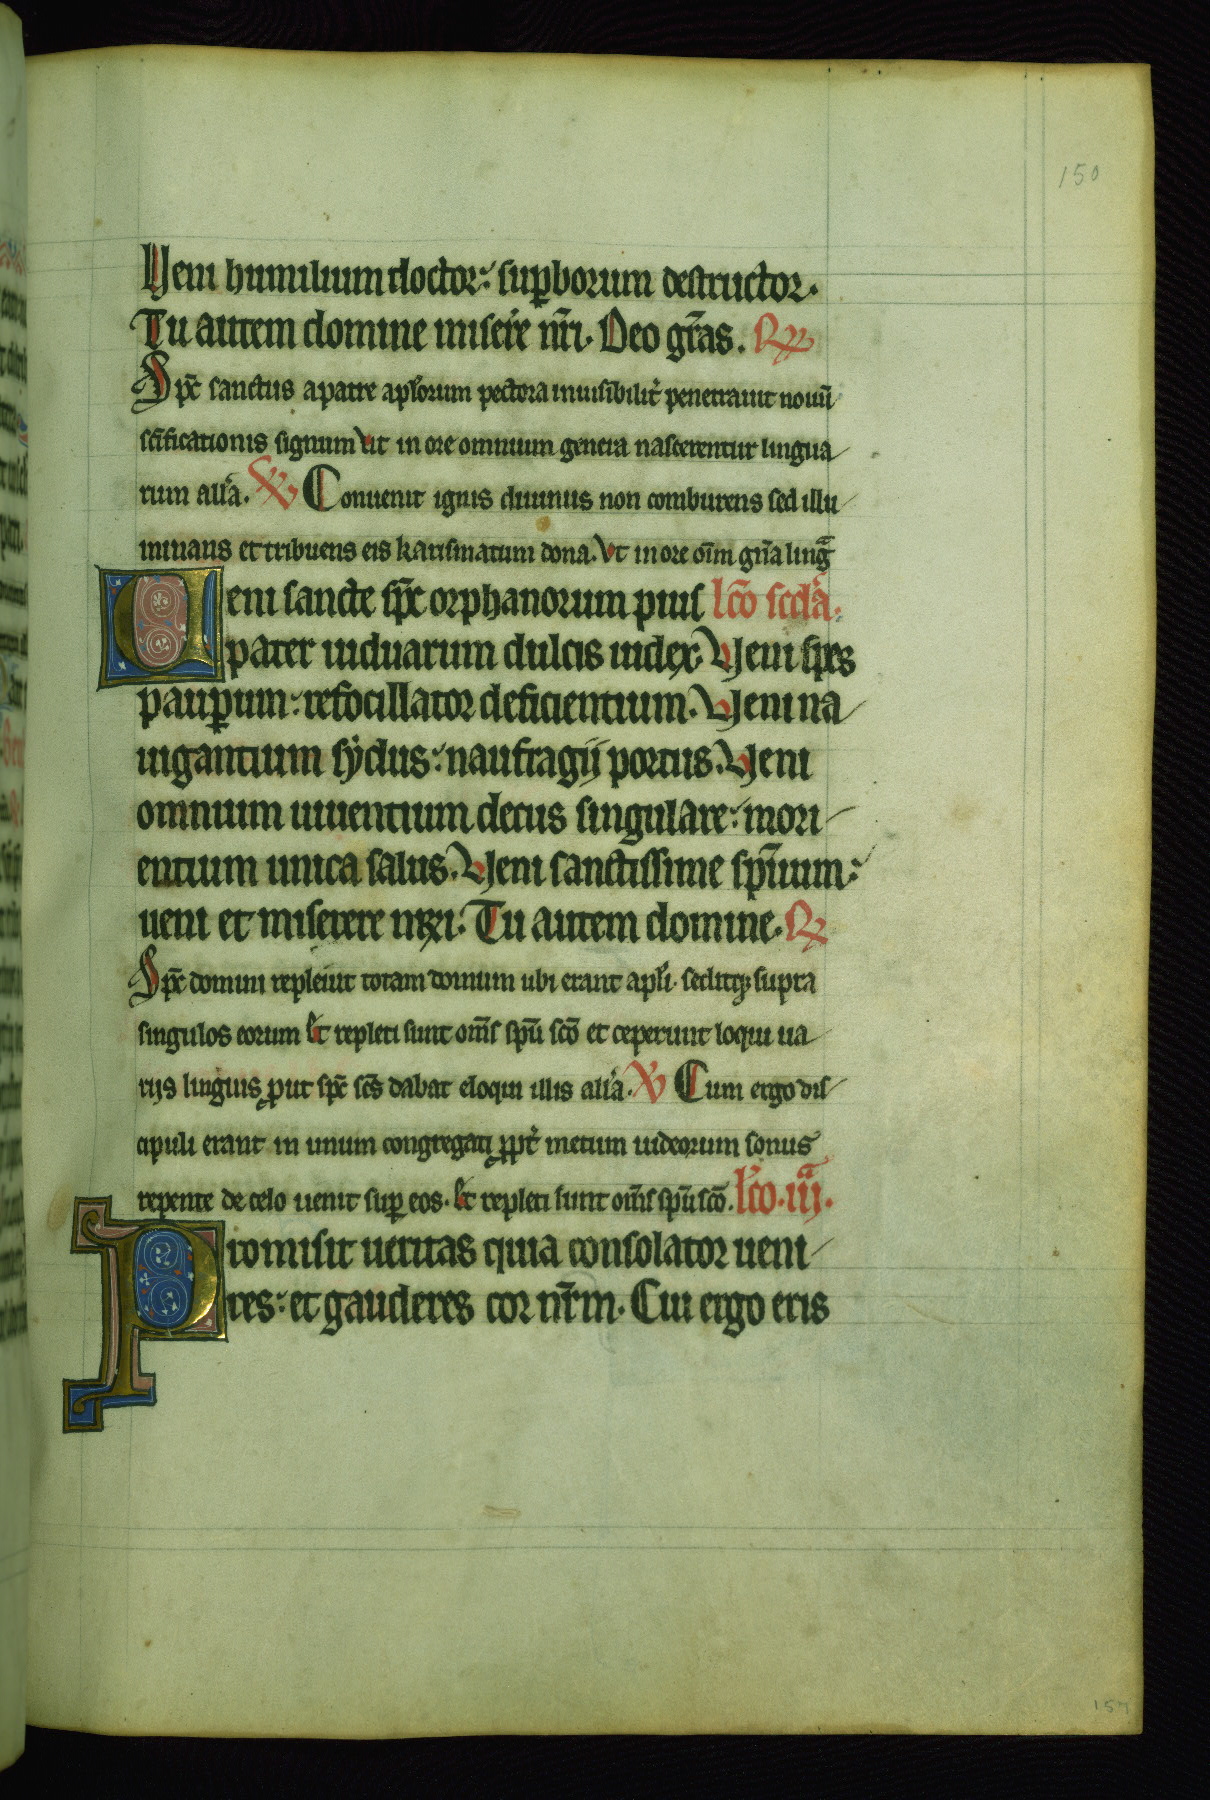 150
Veni humilium doctor: suꝑborum destructor.
Tu autem domine miserẽ nr̃i. Deo gr̃as. R̷
Sps̃ sanctus a patre apl̃orum pectora inuisibilit̃ penetrauit nouũ
sc̃ificationis signum Vt in ore omnium genera nascerentur lingua
rum all̃a. V̷ Conuenit ignis diuinus non comburens sed illu
minans et tribuens eis karismatum dona. Vt in ore om̃i gña ling̃
Veni sancte sps̃ orphanorum pius lc̃o scd̃a.
pater uiduarum dulcis iudex. Veni spes
pauꝑum: refocillator deficientium. Veni na
uigantium sydus: naufragij portus. Veni
omnium uiuentium decus singulare: mori
entium unica salus. Veni sanctissime spũum:
ueni et miserere nr̃i. Tu autem domine. R̷
Sps̃ domini repleuit totam domum ubi erant apl̃i. seditqꝫ supra
singulos eorum Et repleti sunt om̃s spũ sc̃o et ceperunt loqui ua
rijs linguis ꝓut sps̃ sc̃s dabat eloqui illis all̃a. V̷ Cum ergo dis
cipuli erant in unum congregati ꝓpt̃ metum iudeorum sonus
repente de celo uenit suꝑ eos. Et repleti sunt om̃s spũ sc̃o. lc̃o. iij.
Promisit ueritas quia consolator ueni
res: et gauderes cor nr̃m. Cui ergo eris
157